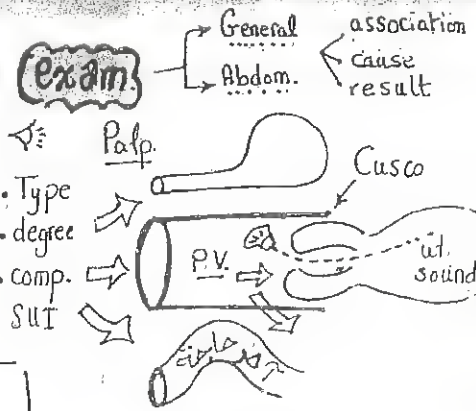 exam.
General
Abdom.
association
cause
result
Palp.
Cusco
• Type
• degree
• comp.
SUI
P.V.
ut.
sound